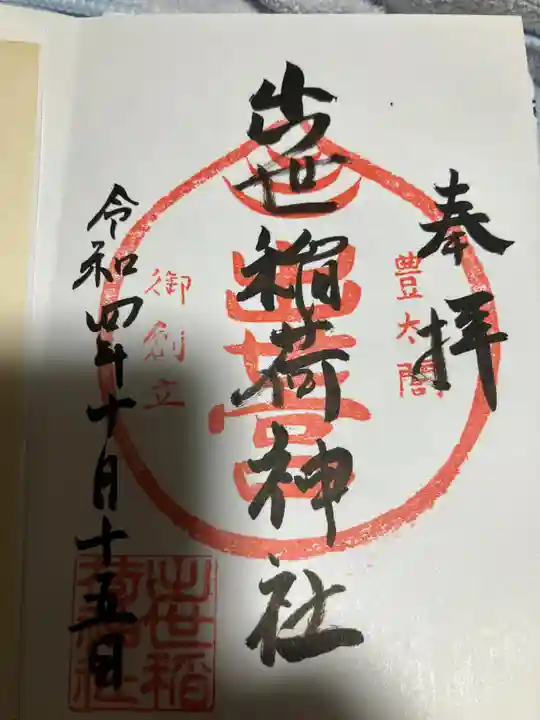 奉拝
豊太閤
出世稲荷神社
御創立
令和四年十月十五日
出世稲
荷神社